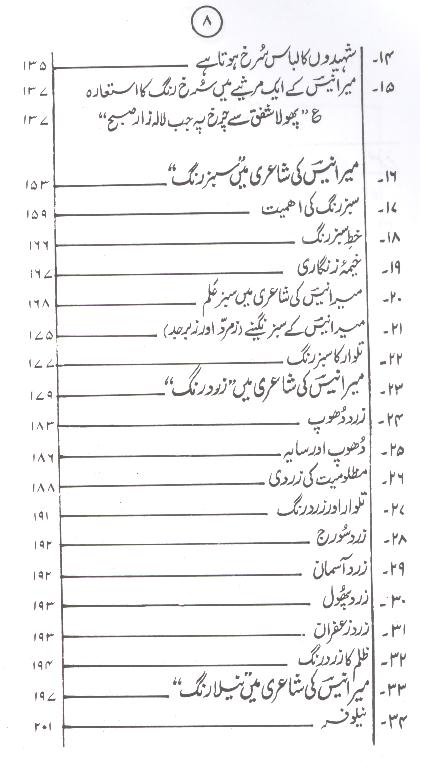 ۸
۱۴۔ شہیدوں کا لباس سُرخ ہوتا ہے ۱۳۵
۱۵۔ میر انیسؔ کے ایک مرثیے میں سُرخ رنگ کا استعارہ ۱۳۷
ع "پھولا شفق سے چرخ پہ جب لالہ زار صبح" ۱۳۷
۱۶۔ میر انیسؔ کی شاعری میں "سبز رنگ" ۱۵۳
۱۷۔ سبز رنگ کی اہمیت ۱۵۹
۱۸۔ خطِ سبز رنگ ۱۶۶
۱۹۔ خیمۂ زنگاری ۱۶۷
۲۰۔ میر انیسؔ کی شاعری میں سبز عَلم ۱۶۸
۲۱۔ میر انیسؔ کے سبز نگینے (زمرّد اور زبرجد) ۱۷۵
۲۲۔ تلوار کا سبز رنگ ۱۷۷
۲۳۔ میر انیسؔ کی شاعری میں "زرد رنگ" ۱۷۹
۲۴۔ زرد دُھوپ ۱۸۳
۲۵۔ دُھوپ اور سایہ ۱۸۶
۲۶۔ مظلومیت کی زردی ۱۸۸
۲۷۔ تلوار اور زرد رنگ ۱۹۱
۲۸۔ زرد سُورج ۱۹۲
۲۹۔ زرد آسمان ۱۹۲
۳۰۔ زرد پھُول ۱۹۳
۳۱۔ زرد زعفران ۱۹۳
۳۲۔ ظلم کا زرد رنگ ۱۹۴
۳۳۔ میر انیسؔ کی شاعری میں "نیلا رنگ" ۱۹۷
۳۴۔ نیلوفر ۲۰۱